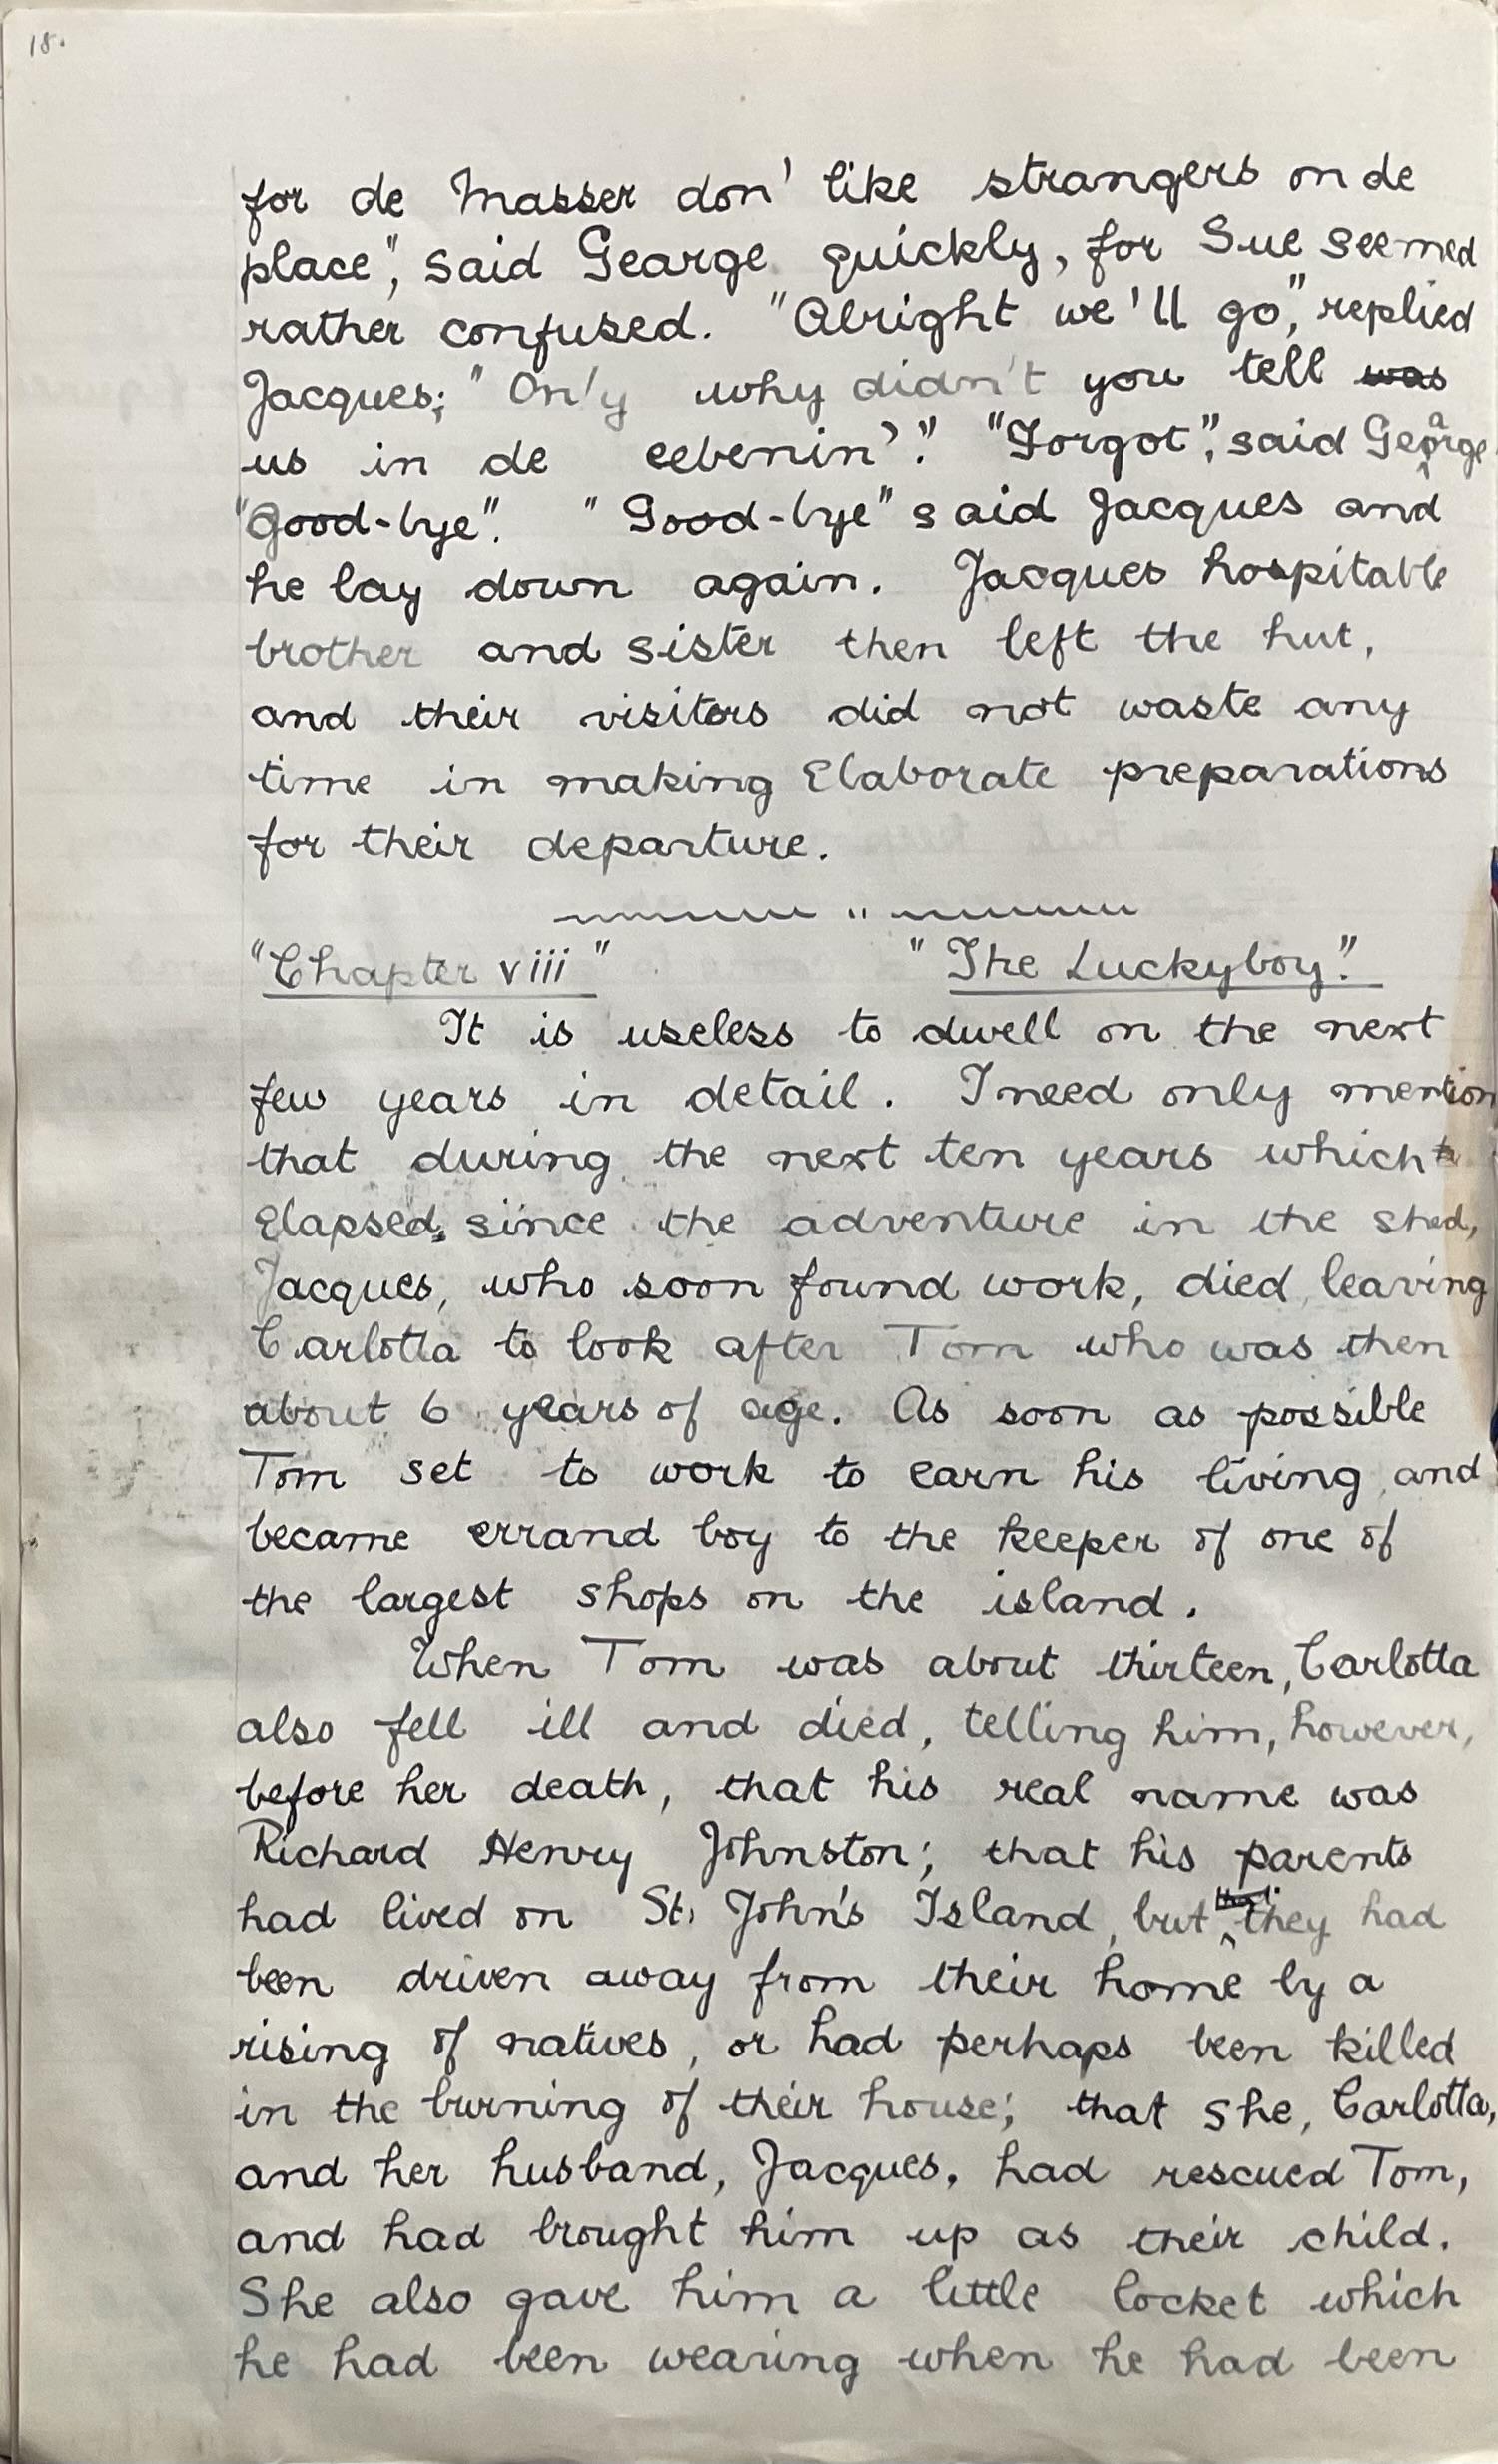 18.
for de Masser don' like strangers on de
place", said Gearge quickly, for Sue seemed
rather confused. "Alright we'll go", replied
Jacques; "On'y why didn't you tell was
us in de eebenin'?" "Forgot", said Gearge
"Good-bye". "Good-bye" said Jacques and
he lay down again. Jacques hospitable
brother and sister then left the hut,
and their visitors did not waste any
time in making Elaborate preparations
for their departure.
"Chapter viii" "The Luckyboy."
It is useless to dwell on the next
few years in detail. I need only mention
that during the next ten years which
Elapsed, since the adventure in the shed,
Jacques, who soon found work, died, leaving
Carlotta to look after Tom who was then
about 6 years of age. As soon as possible
Tom set to work to earn his living, and
became errand boy to the keeper of one of
the largest shops on the island.
When Tom was about thirteen, Carlotta
also fell ill and died, telling him, however,
before her death, that his real name was
Richard Henry Johnston; that his parents
had lived on St. John's Island, but that they had
been driven away from their home by a
rising of natives, or had perhaps been killed
in the burning of their house; that she, Carlotta,
and her husband, Jacques, had rescued Tom,
and had brought him up as their child.
She also gave him a little locket which
he had been wearing when he had been